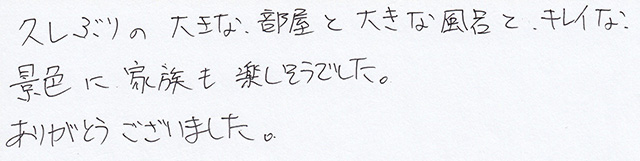 久しぶりの 大きな、部屋と大きな風呂と、キレイな、
景色に 家族も 楽しそうでした。
ありがとうございました。